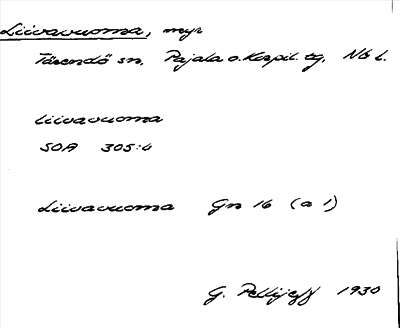 Liivavuoma, myr
Tärendö sn, Pajala o. Korpil. tg, Nb l.
liivavuoma
SOA 305:4
Liivavuoma Gn 16 (a 1)
G. Pellijeff 1930